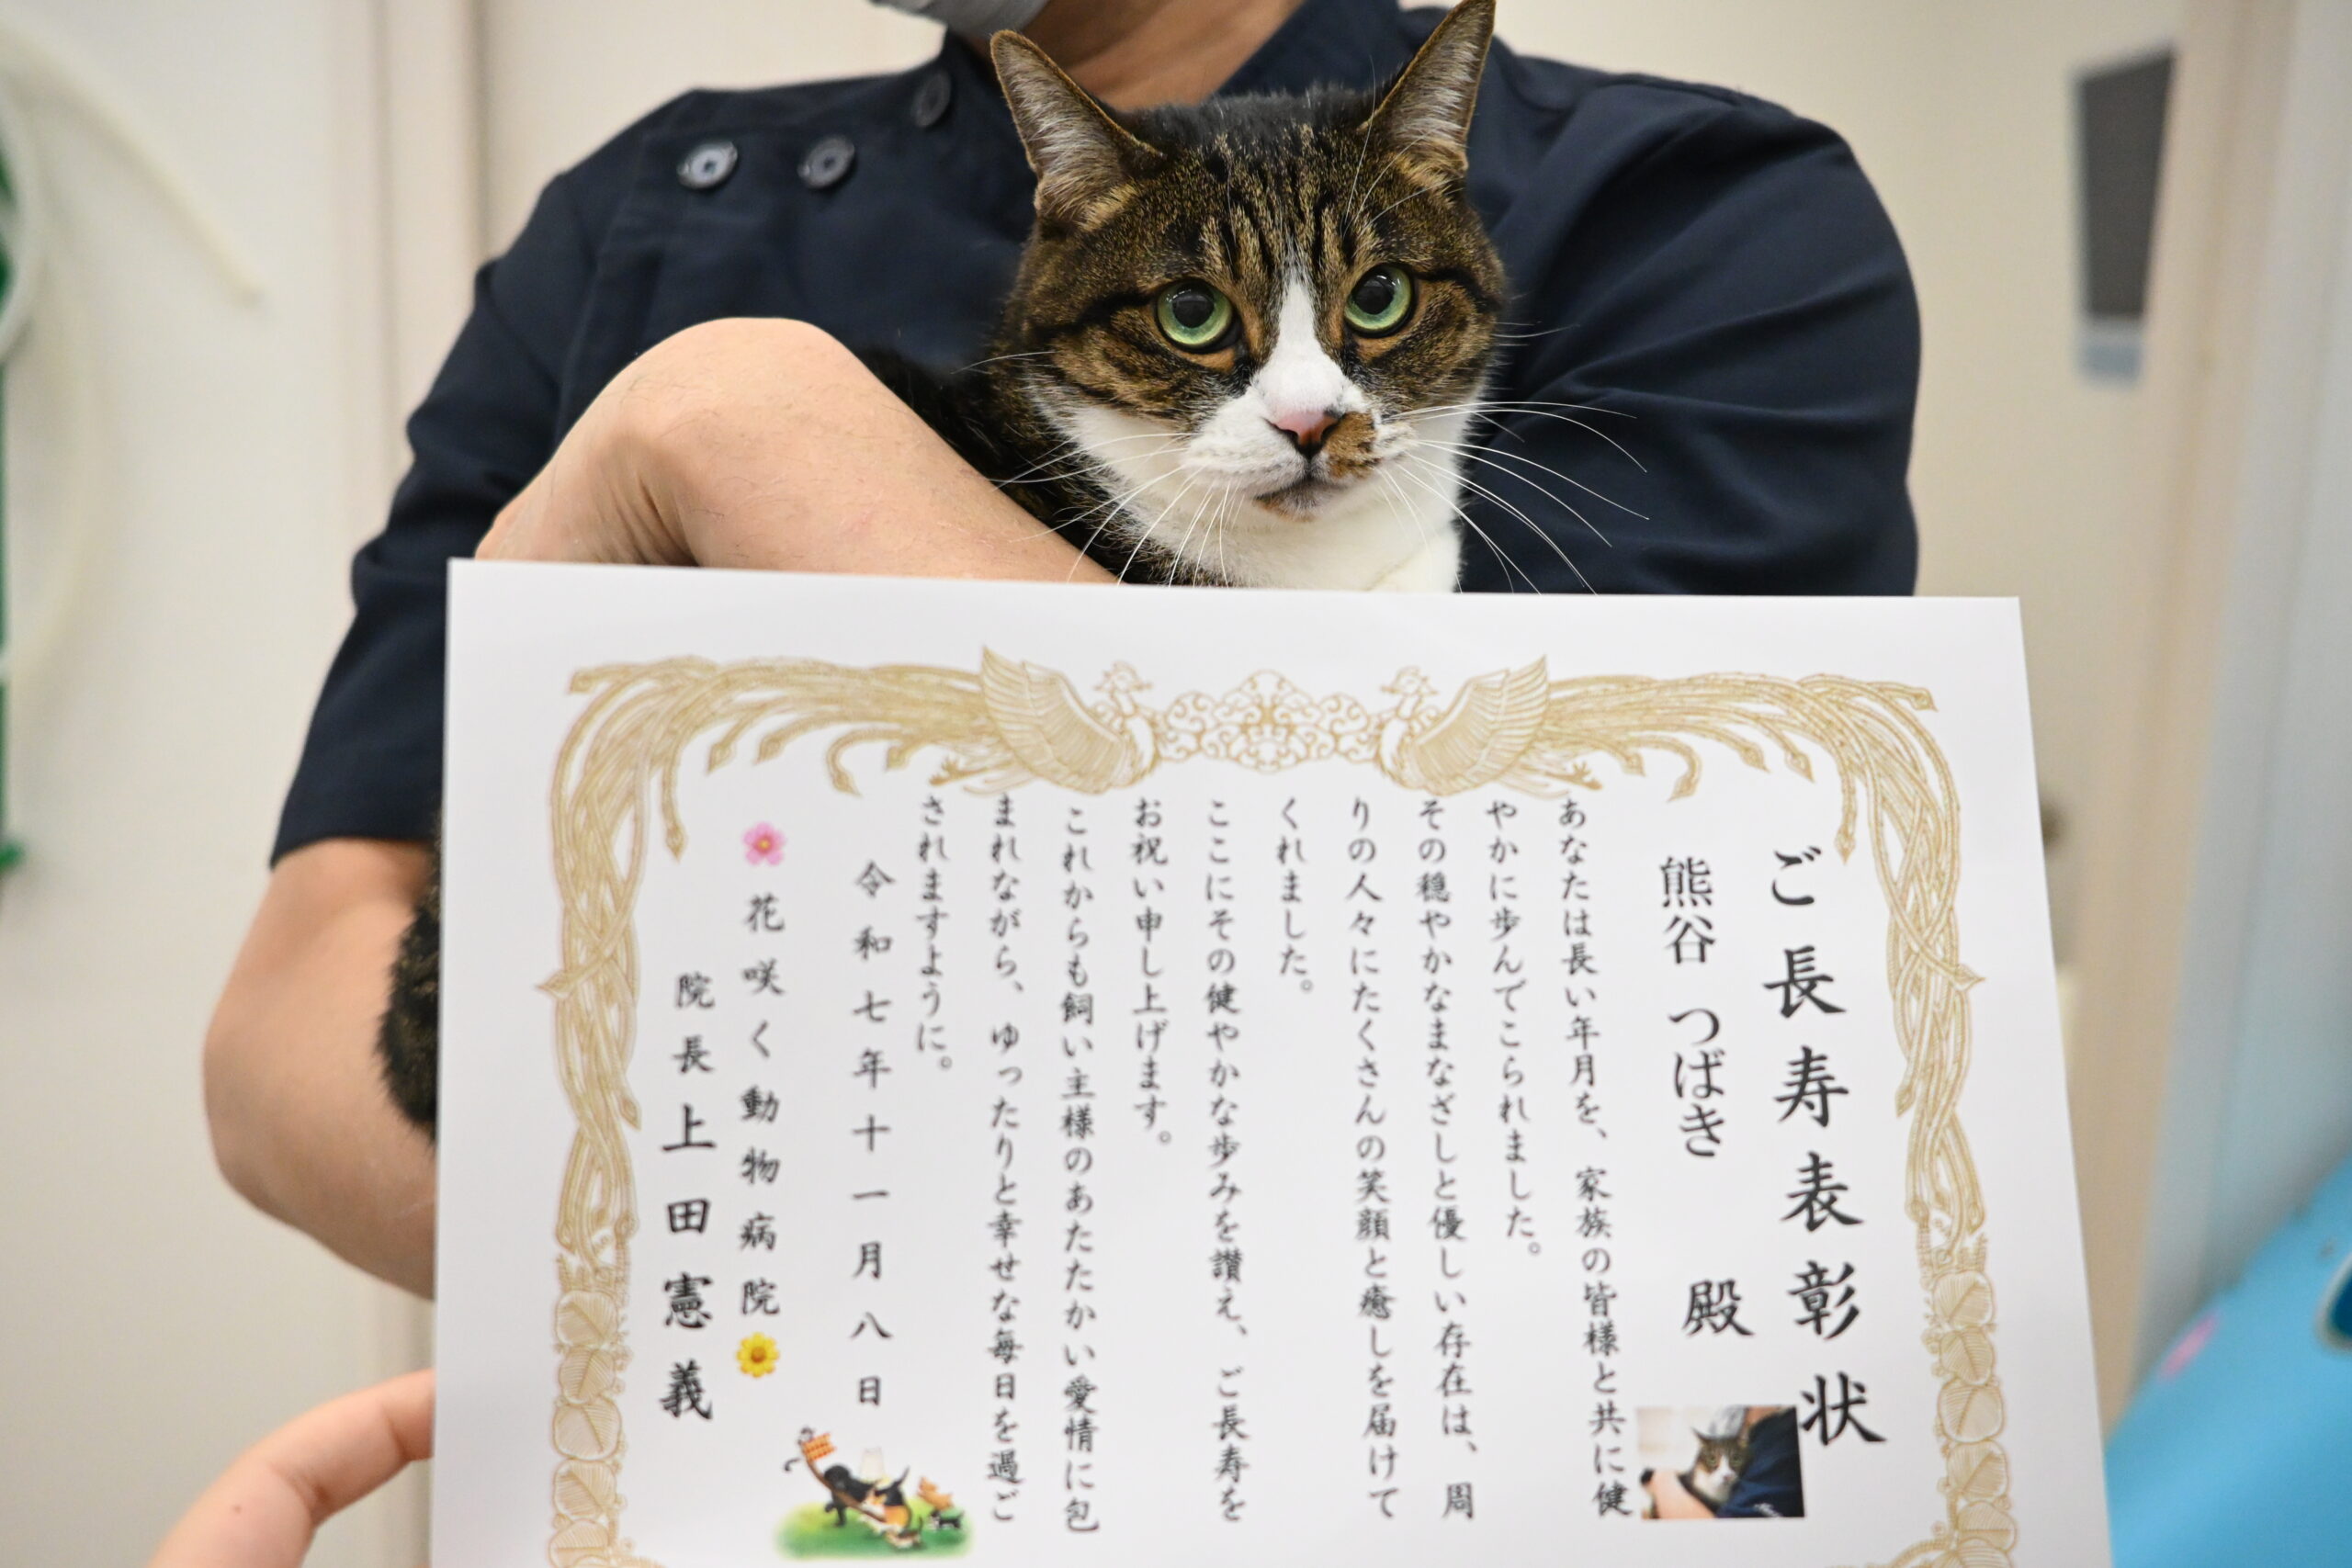 ご長寿表彰状
熊谷 つばき 殿
あなたは長い年月を、家族の皆様と共に健
やかに歩んでこられました。
その穏やかなまなざしと優しい存在は、周
りの人々にたくさんの笑顔と癒しを届けて
くれました。
ここにその健やかな歩みを讃え、ご長寿を
お祝い申し上げます。
これからも飼い主様のあたたかい愛情に包
まれながら、ゆったりと幸せな毎日を過ご
されますように。
令和七年十一月八日
花咲く動物病院
院長上田憲義